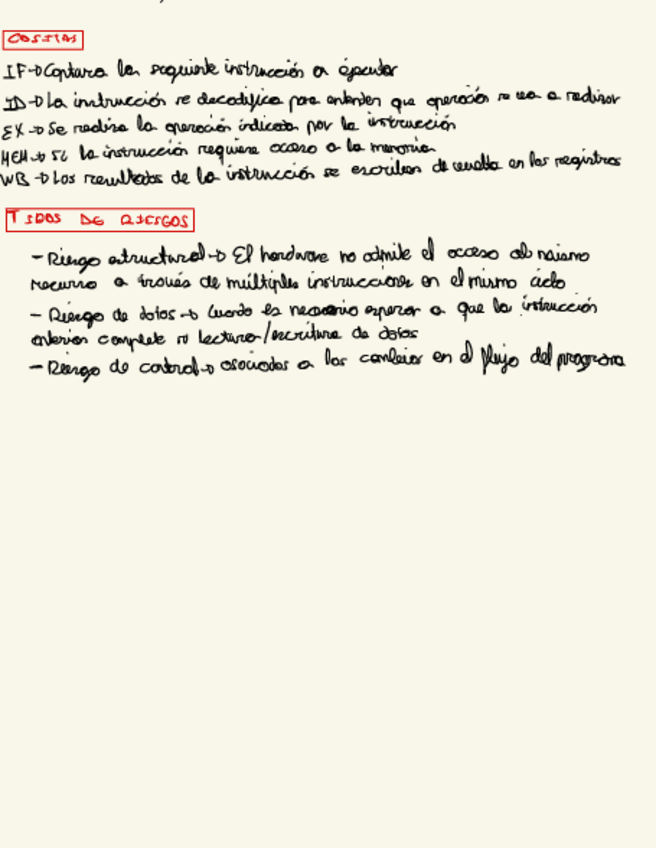 COSITAS
IF → Captura la siguiente instrucción a ejecutar
ID → La instrucción se decodifica para entender que operación se va a realizar
EX → Se realiza la operación indicada por la instrucción
MEM → Si la instrucción requiere acceso a la memoria
WB → Los resultados de la instrucción se escriben de vuelta en los registros
TIPOS DE RIESGOS
- Riesgo estructural → El hardware no admite el acceso al mismo
recurso a través de múltiples instrucciones en el mismo ciclo
- Riesgo de datos → Cuando es necesario esperar a que la instrucción
anterior complete su lectura/escritura de datos
- Riesgo de control → asociados a los cambios en el flujo del programa